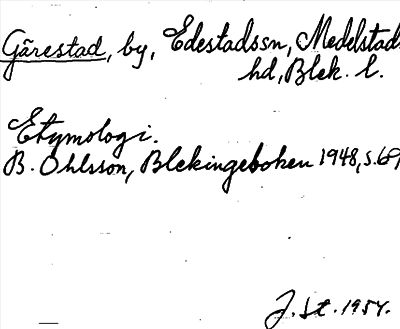 Gårestad, by, Edestadssn, Medelstads
hd, Blek. l.
Etymologi.
B. Ohlsson, Blekingeboken 1948, s. 69
J. St. 1954.